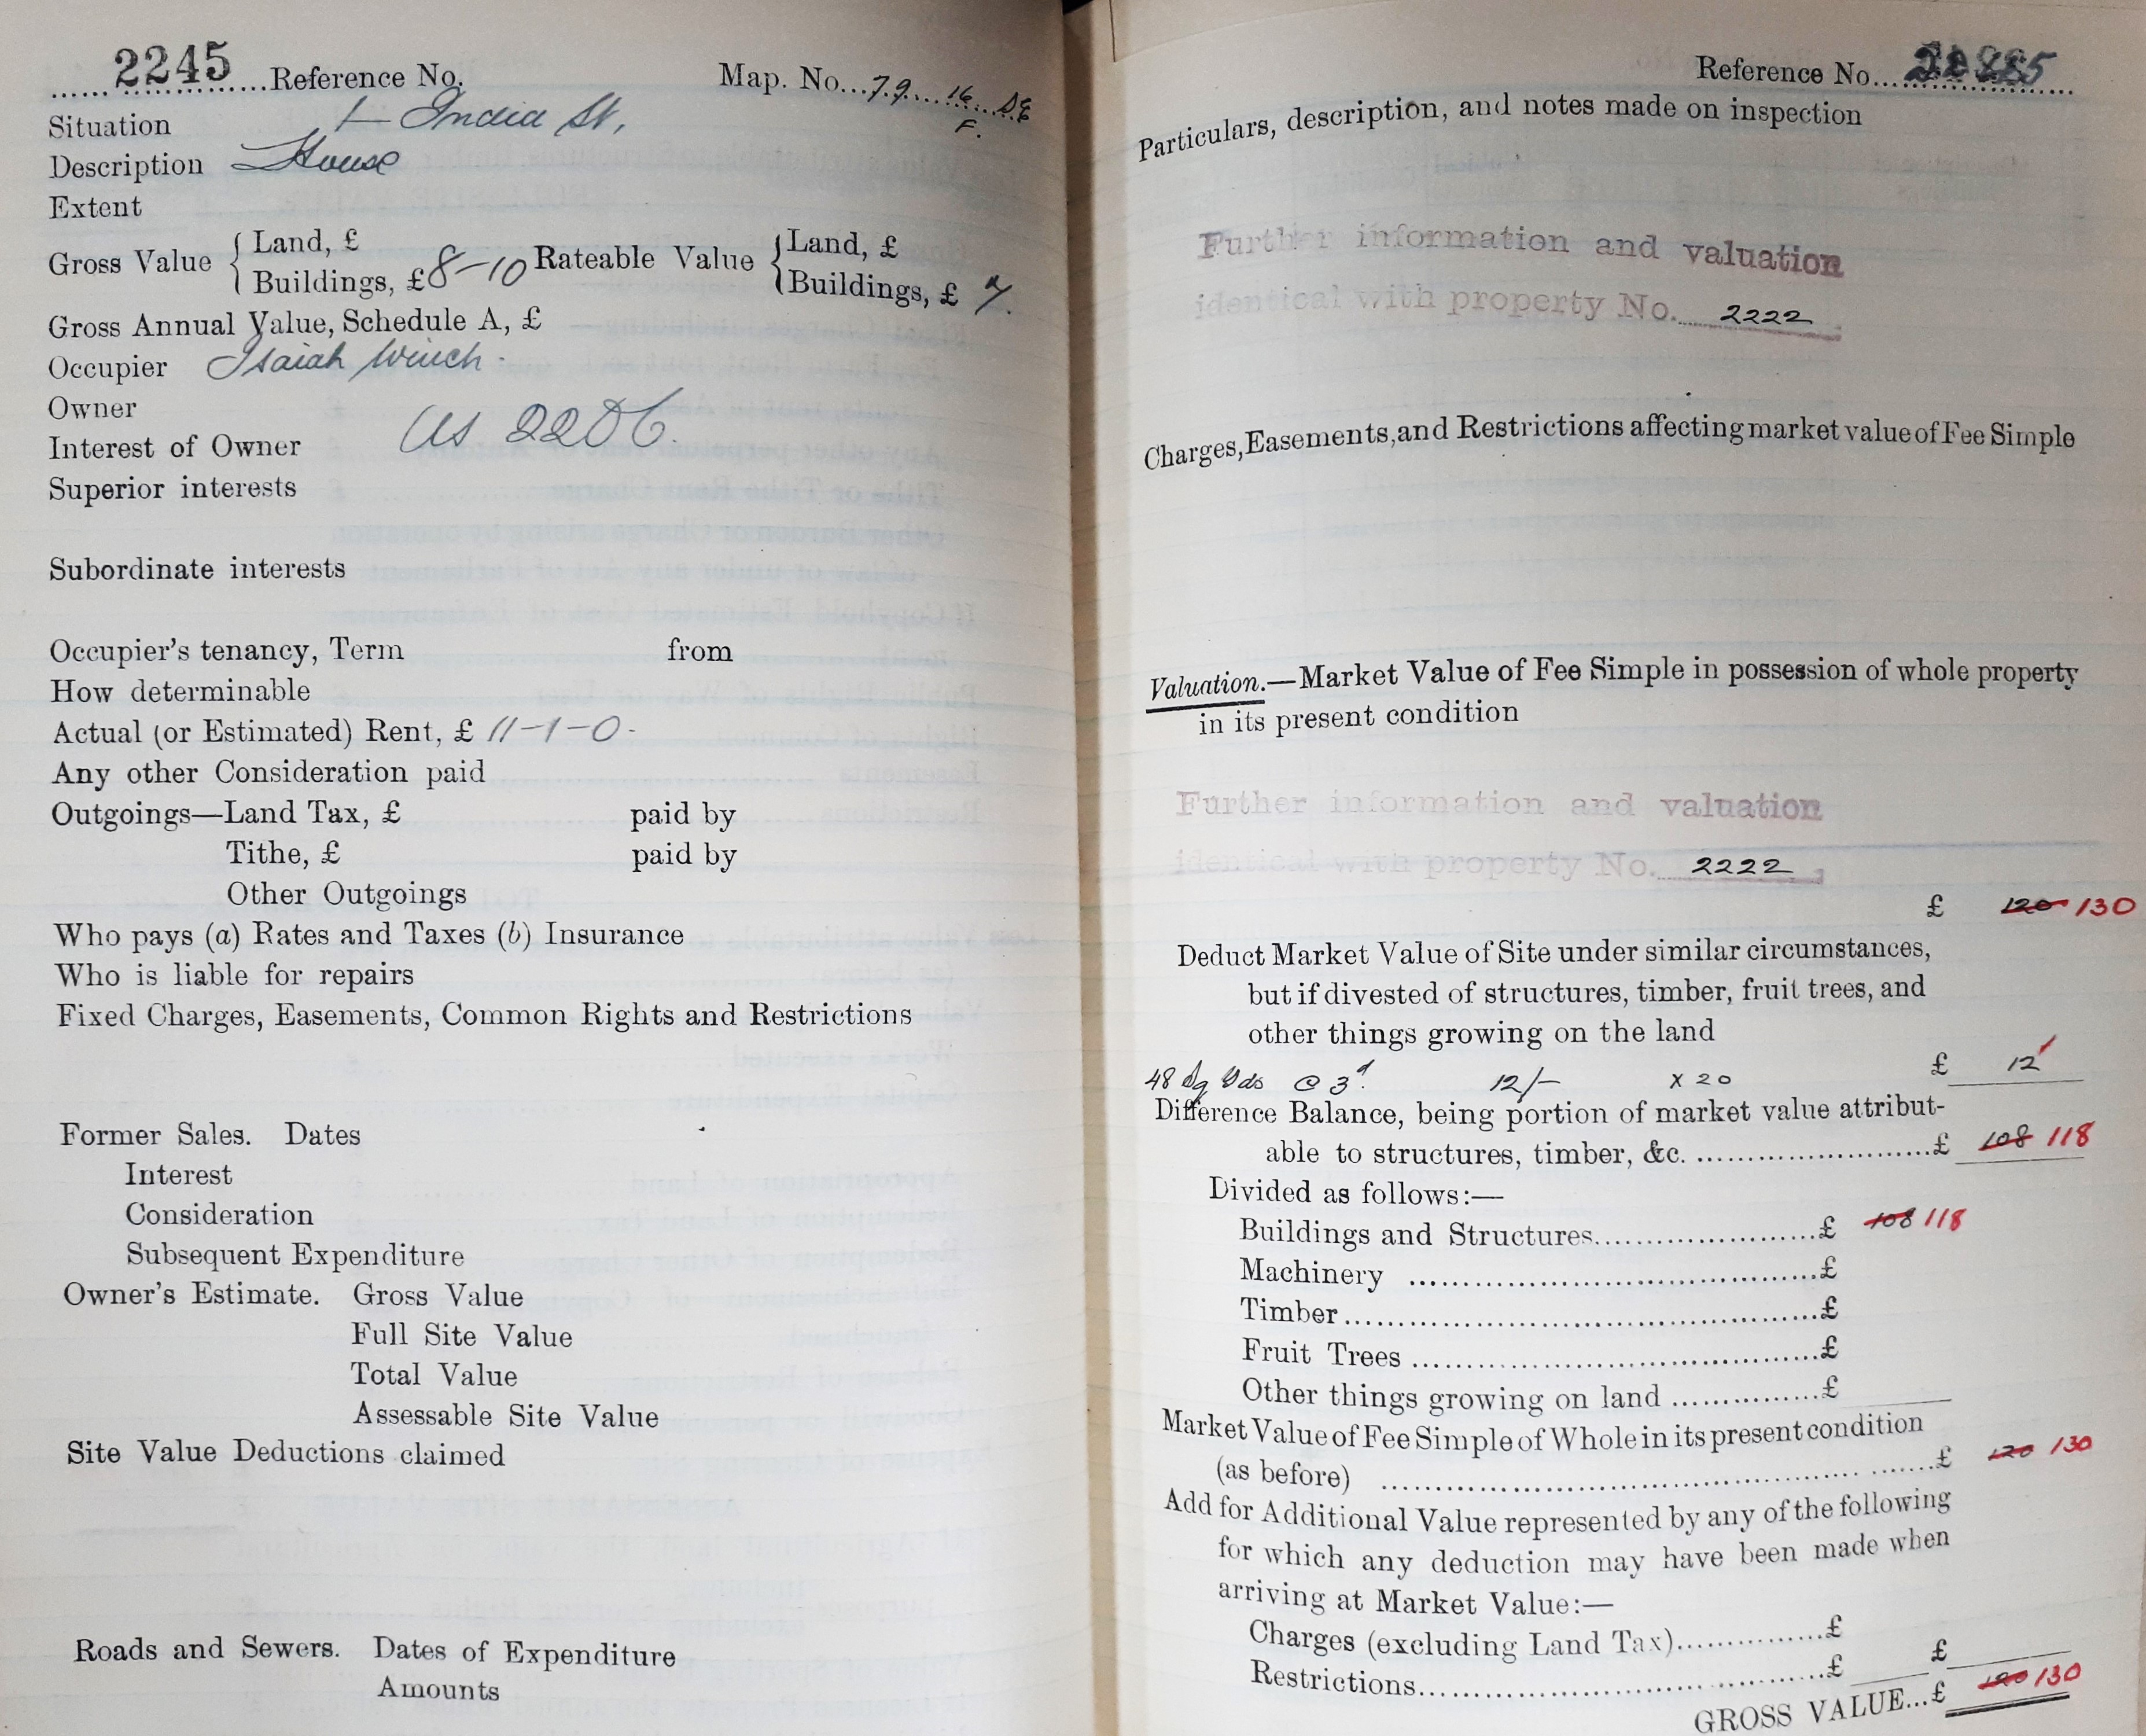 2245 Reference No. Map. No. 79 16 S.E
F.
Situation 1 India St,
Description House
Extent
Gross Value { Land, £ Rateable Value { Land, £
Buildings, £ 8-10 Buildings, £ 7.
Gross Annual Value, Schedule A, £
Occupier Isaiah Winch.
Owner
Interest of Owner As 2206.
Superior interests
Subordinate interests
Occupier's tenancy, Term from
How determinable
Actual (or Estimated) Rent, £ 11-1-0.
Any other Consideration paid
Outgoings—Land Tax, £ paid by
Tithe, £ paid by
Other Outgoings
Who pays (a) Rates and Taxes (b) Insurance
Who is liable for repairs
Fixed Charges, Easements, Common Rights and Restrictions
Former Sales. Dates
Interest
Consideration
Subsequent Expenditure
Owner's Estimate. Gross Value
Full Site Value
Total Value
Assessable Site Value
Site Value Deductions claimed
Roads and Sewers. Dates of Expenditure
Amounts
Reference No.
Particulars, description, and notes made on inspection
Further information and valuation
identical with property No. 2222
Charges, Easements, and Restrictions affecting market value of Fee Simple
Valuation.—Market Value of Fee Simple in possession of whole property
in its present condition
Further information and valuation
identical with property No. 2222
£ 120 130
Deduct Market Value of Site under similar circumstances,
but if divested of structures, timber, fruit trees, and
other things growing on the land
48 Sq Yds @ 3d. 12/- x 20 £ 12
Difference Balance, being portion of market value attribut-
able to structures, timber, &c. £ 108 118
Divided as follows:—
Buildings and Structures £ 108 118
Machinery £
Timber £
Fruit Trees £
Other things growing on land £
Market Value of Fee Simple of Whole in its present condition
(as before) £ 120 130
Add for Additional Value represented by any of the following
for which any deduction may have been made when
arriving at Market Value:—
Charges (excluding Land Tax) £
Restrictions £ £
GROSS VALUE... £ 120 130